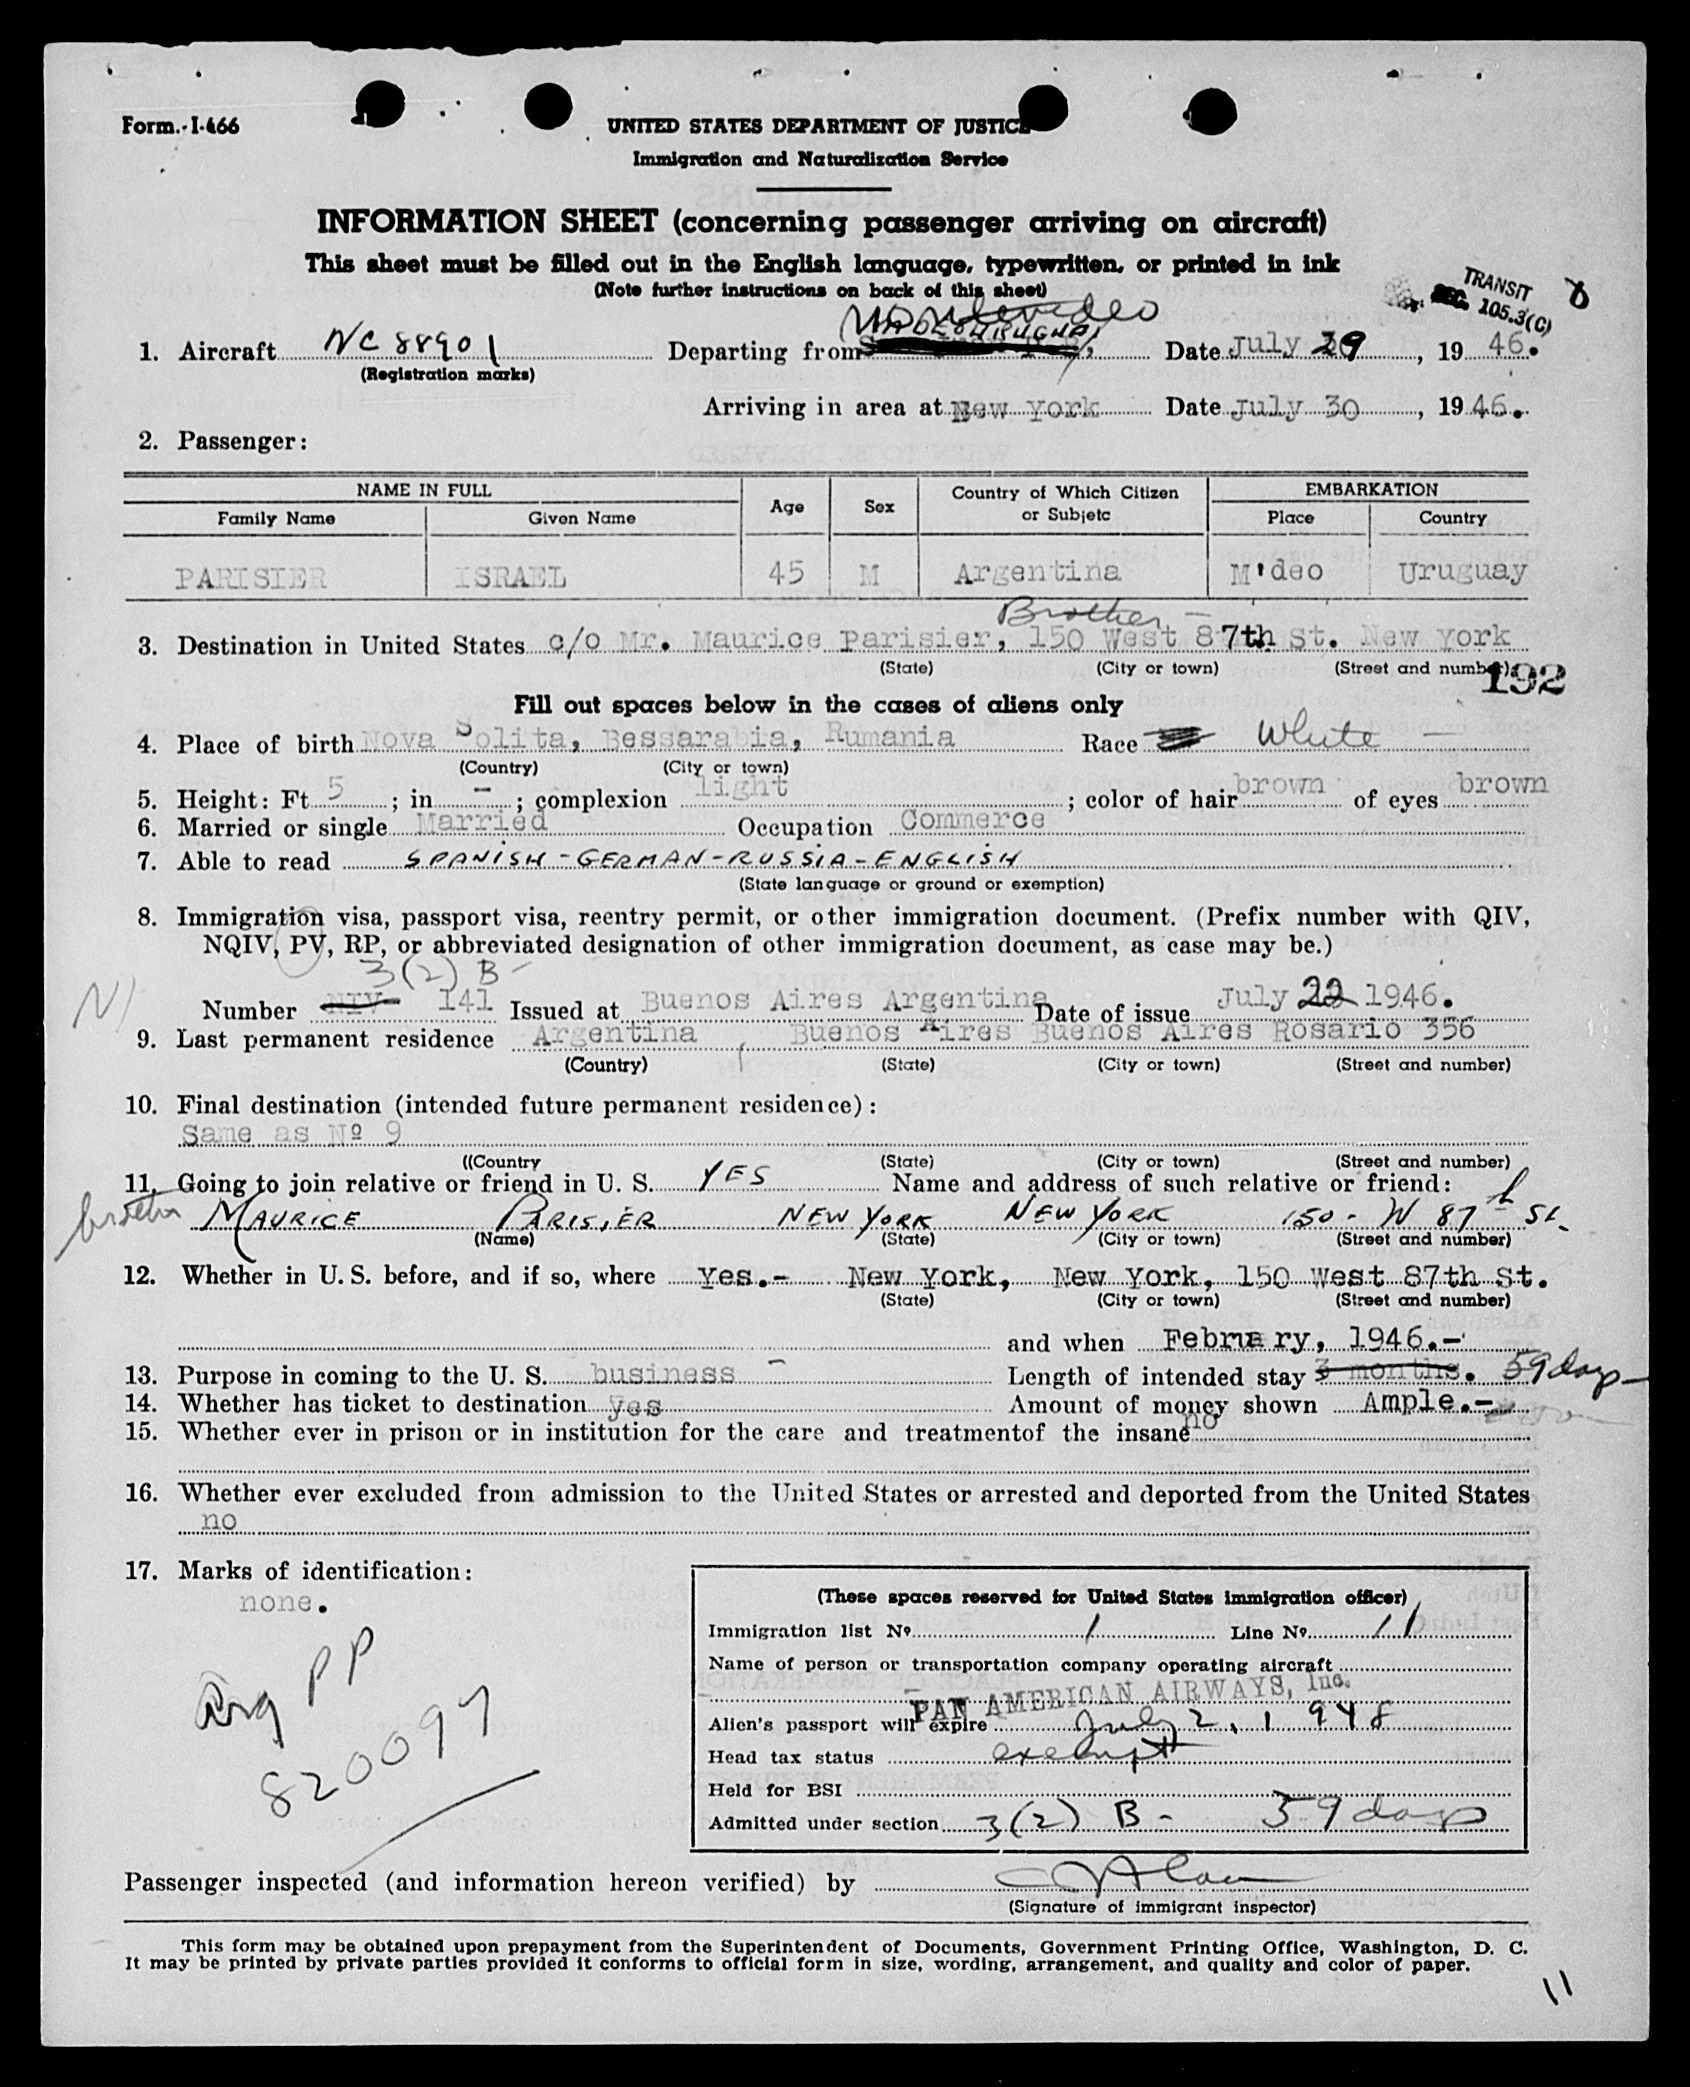 Form.-I-466
UNITED STATES DEPARTMENT OF JUSTICE
Immigration and Naturalization Service
INFORMATION SHEET (concerning passenger arriving on aircraft)
This sheet must be filled out in the English language, typewritten, or printed in ink
(Note further instructions on back of this sheet)
TRANSIT
SEC. 105.3(C)
Montevideo
1. Aircraft NC 88901 Departing from Date July 29, 1946.
(Registration marks)
Arriving in area at New York Date July 30, 1946.
2. Passenger:
NAME IN FULL Age Sex Country of Which Citizen or Subjetc EMBARKATION
Family Name Given Name Place Country
PARISIER ISRAEL 45 M Argentina M'deo Uruguay
Brother -
3. Destination in United States c/o Mr. Maurice Parisier, 150 West 87th St. New York
(State) (City or town) (Street and number)
192
Fill out spaces below in the cases of aliens only
4. Place of birth Nova Solita, Bessarabia, Rumania Race White -
(Country) (City or town)
5. Height: Ft 5 ; in - ; complexion light ; color of hair brown of eyes brown
6. Married or single Married Occupation Commerce
7. Able to read SPANISH - GERMAN - RUSSIA - ENGLISH
(State language or ground or exemption)
8. Immigration visa, passport visa, reentry permit, or other immigration document. (Prefix number with QIV,
NQIV, PV, RP, or abbreviated designation of other immigration document, as case may be.)
3(2) B -
Number NIV- 141 Issued at Buenos Aires Argentina Date of issue July 22 1946.
9. Last permanent residence Argentina , Buenos Aires Buenos Aires Rosario 356
(Country) (State) (City or town) (Street and number)
10. Final destination (intended future permanent residence):
Same as Nº 9
((Country (State) (City or town) (Street and number)
11. Going to join relative or friend in U. S. YES Name and address of such relative or friend:
brother MAURICE PARISIER NEW YORK NEW YORK 150 - W 87th St.
(Name) (State) (City or town) (Street and number)
12. Whether in U. S. before, and if so, where Yes.- New York, New York, 150 West 87th St.
(State) (City or town) (Street and number)
and when February, 1946.-
13. Purpose in coming to the U. S. business - Length of intended stay 3 months. 59 days -
14. Whether has ticket to destination yes Amount of money shown Ample.-
15. Whether ever in prison or in institution for the care and treatmentof the insane no
16. Whether ever excluded from admission to the United States or arrested and deported from the United States
no
17. Marks of identification:
none.
Arg PP
820097
(These spaces reserved for United States immigration officer)
Immigration list Nº 1 Line Nº 11
Name of person or transportation company operating aircraft
PAN AMERICAN AIRWAYS, Inc.
Alien's passport will expire July 2, 1948
Head tax status exempt
Held for BSI
Admitted under section 3(2) B - 59 days
Passenger inspected (and information hereon verified) by
(Signature of immigrant inspector)
This form may be obtained upon prepayment from the Superintendent of Documents, Government Printing Office, Washington, D. C.
It may be printed by private parties provided it conforms to official form in size, wording, arrangement, and quality and color of paper.
11